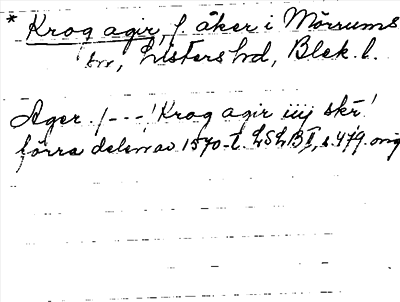 * Krog agir, f. åker i Mörrums
sn, Listers hd, Blek. l.
Ager. /---/ Krog agir iiij skr̄
förra delen av 1570-t. LSLB I, s. 479. orig